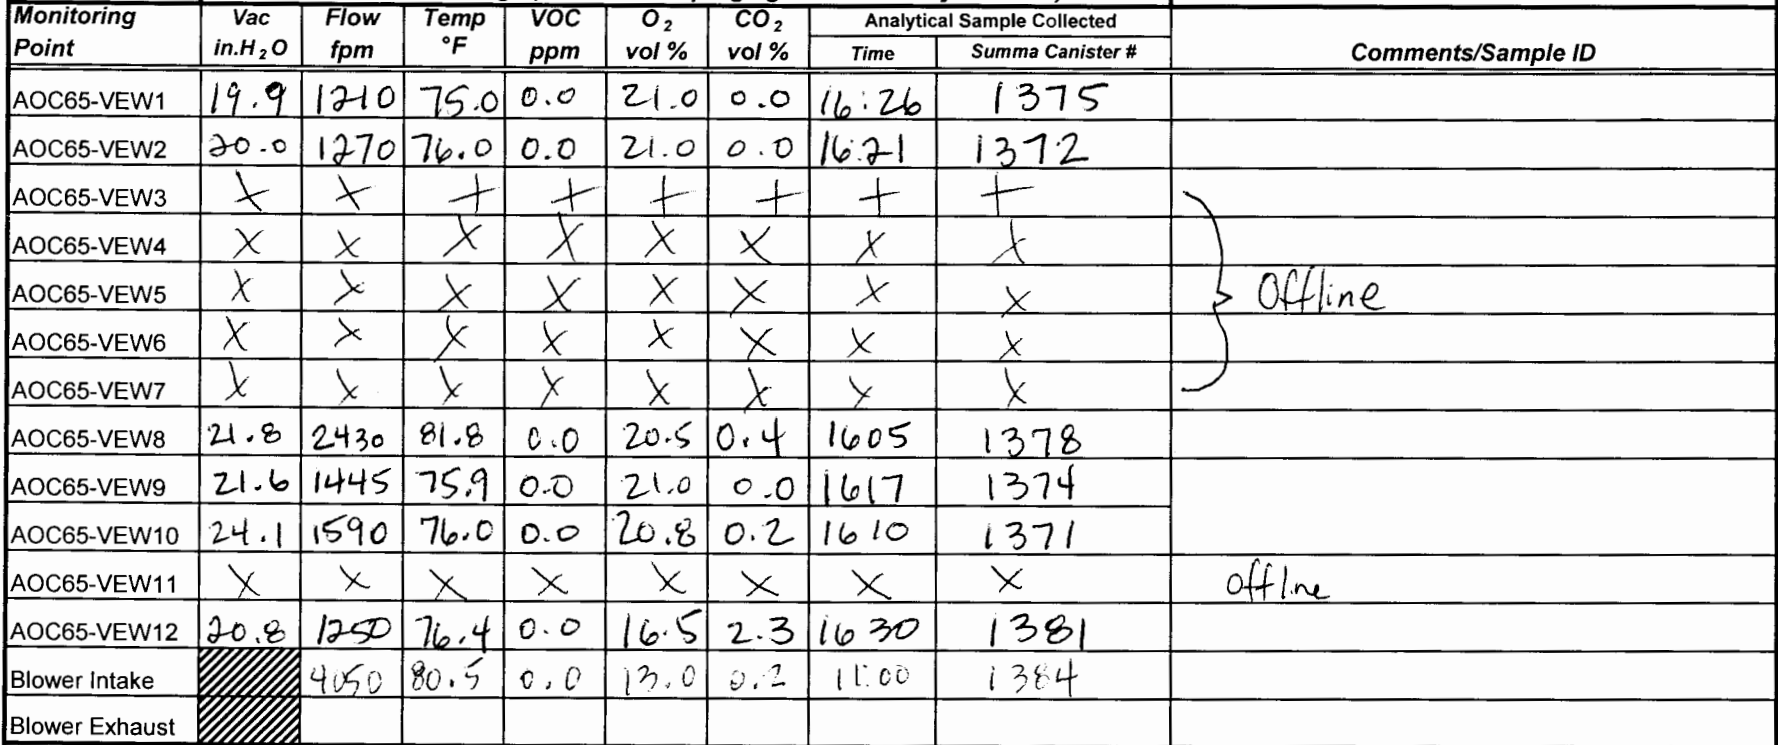 Monitoring Point Vac in.H2O Flow fpm Temp °F VOC ppm O2 vol % CO2 vol % Analytical Sample Collected Time Summa Canister # Comments/Sample ID
AOC65-VEW1 19.9 1210 75.0 0.0 21.0 0.0 16:26 1375
AOC65-VEW2 20.0 1270 76.0 0.0 21.0 0.0 16:21 1372
AOC65-VEW3 X X X X X X X X
AOC65-VEW4 X X X X X X X X
AOC65-VEW5 X X X X X X X X Offline
AOC65-VEW6 X X X X X X X X
AOC65-VEW7 X X X X X X X X
AOC65-VEW8 21.8 2430 81.8 0.0 20.5 0.4 1605 1378
AOC65-VEW9 21.6 1445 75.9 0.0 21.0 0.0 1617 1374
AOC65-VEW10 24.1 1590 76.0 0.0 20.8 0.2 1610 1371
AOC65-VEW11 X X X X X X X X offline
AOC65-VEW12 20.8 1250 76.4 0.0 16.5 2.3 1630 1381
Blower Intake 4050 80.5 0.0 13.0 0.2 11:00 1384
Blower Exhaust